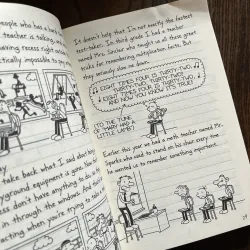 people who has a back
teacher is taking
having recess right outs
ctically impossible to pay
take back what I said about
playground equipment is gone. Now
ess don't have anything to do
in through the windows. And
acting when you're trying to
It doesn't help that I'm not exactly the fastest
test-taker. In third grade I had a teacher
named Mrs. Sinclair who taught us all these great
tricks for remembering multiplication facts. But
they seriously slow me down.
EIGHT TIMES FOUR IS THIRTY-TWO,
THIRTY-TWO, THIRTY-TWO!
EIGHT TIMES FOUR IS THIRTY-TWO,
AND NOW YOU KNOW IT'S TRUE!
TO THE TUNE
OF "MARY HAD A
LITTLE LAMB"
Earlier this year we had a math teacher named Mr.
Sparks who used to stand on his chair every time
he wanted us to remember something important.